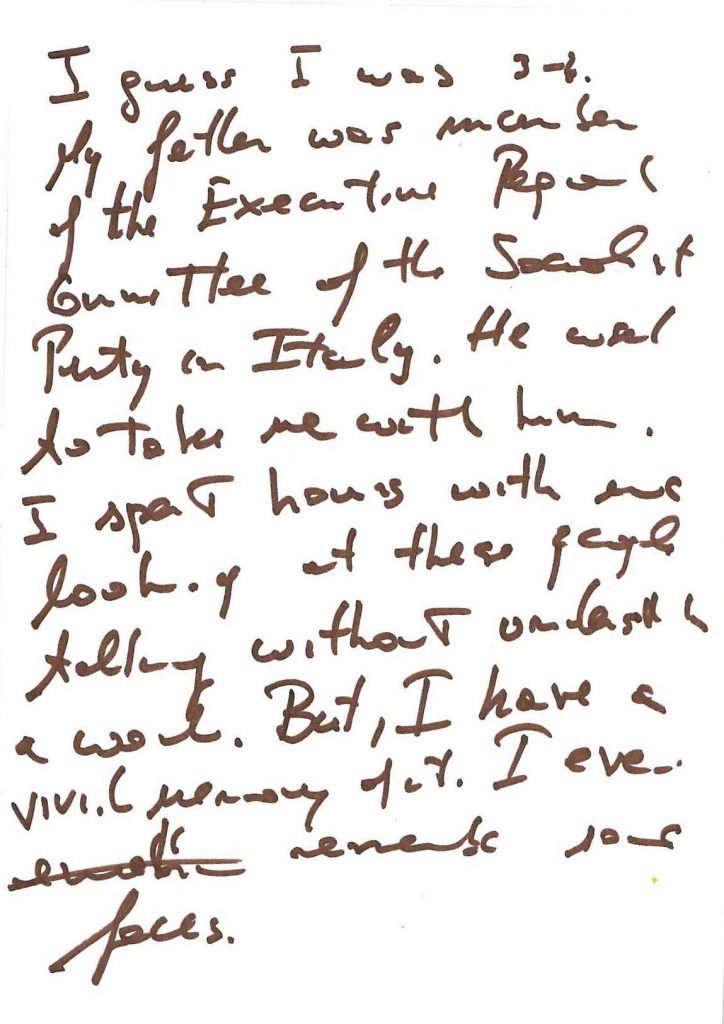 I guess I was 3-4.
My father was member
of the Executive Regional
Committee of the Socialist
Party in Italy. He used
to take me with him.
I spent hours with
looking at these people
talking without understanding
a word. But, I have a
vivid memory of it. I even
remember some
faces.